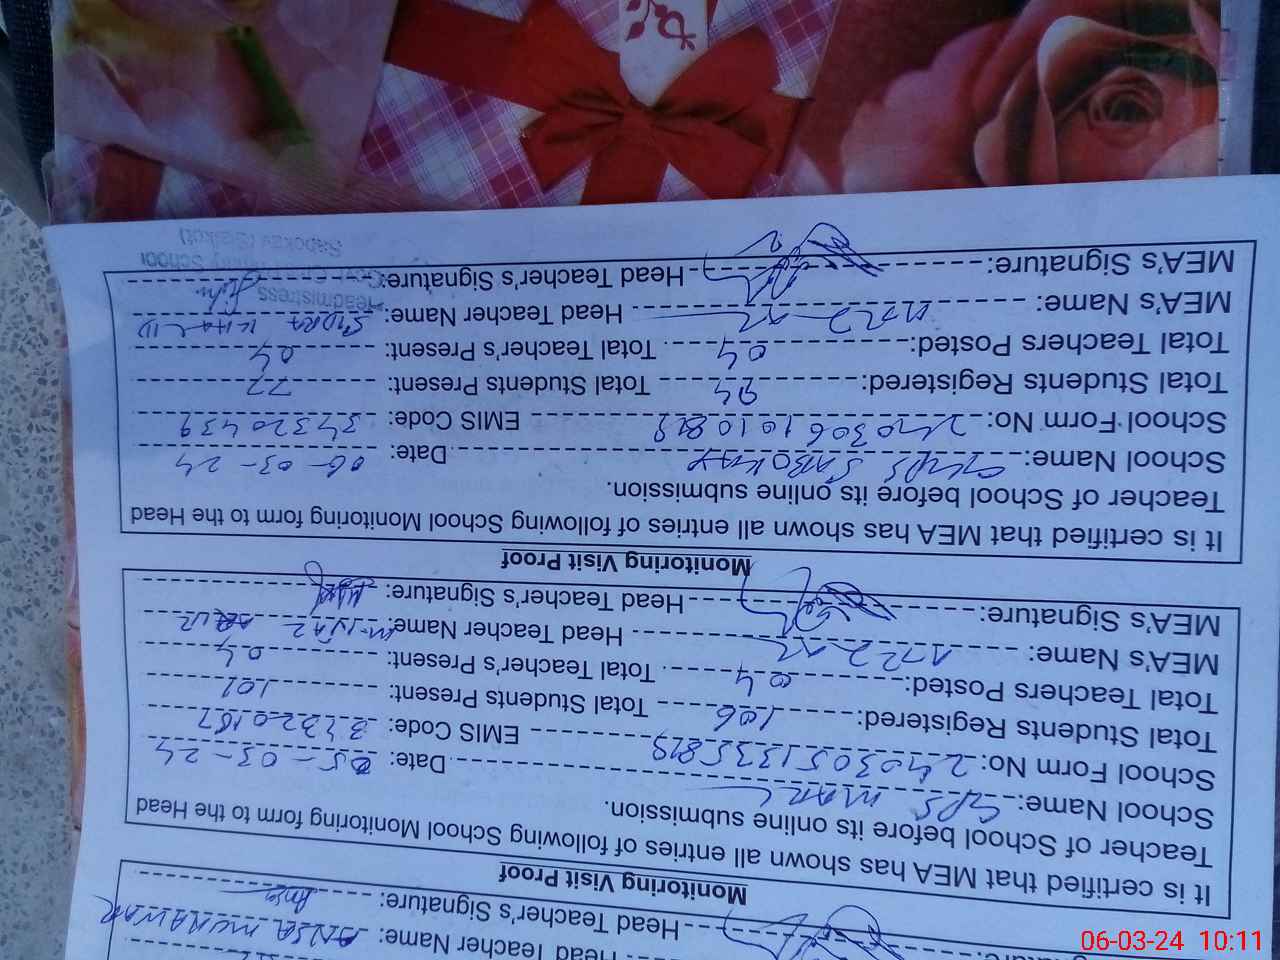 Head Teacher Name: ANSA MUNAWAR
Signature: Head Teacher's Signature: Ansa
Monitoring Visit Proof
It is certified that MEA has shown all entries of following School Monitoring School Monitoring form to the Head
Teacher of School before its online submission.
School Name: GPS Date: 05-03-24
School Form No: 2403051335819 EMIS Code: 34320187
Total Students Registered: 106 Total Students Present: 101
Total Teachers Posted: 04 Total Teacher's Present: 04
MEA's Name: Head Teacher Name:
MEA's Signature: Head Teacher's Signature:
Monitoring Visit Proof
It is certified that MEA has shown all entries of following School Monitoring form to the Head
Teacher of School before its online submission.
School Name: GGPS SABOKAY Date: 06-03-24
School Form No: 2403061010819 EMIS Code: 34320439
Total Students Registered: 94 Total Students Present: 77
Total Teachers Posted: 04 Total Teacher's Present: 04
MEA's Name: Head Teacher Name: SIDRA KHALID
MEA's Signature: Head Teacher's Signature:
Headmistress
School
06-03-24 10:11